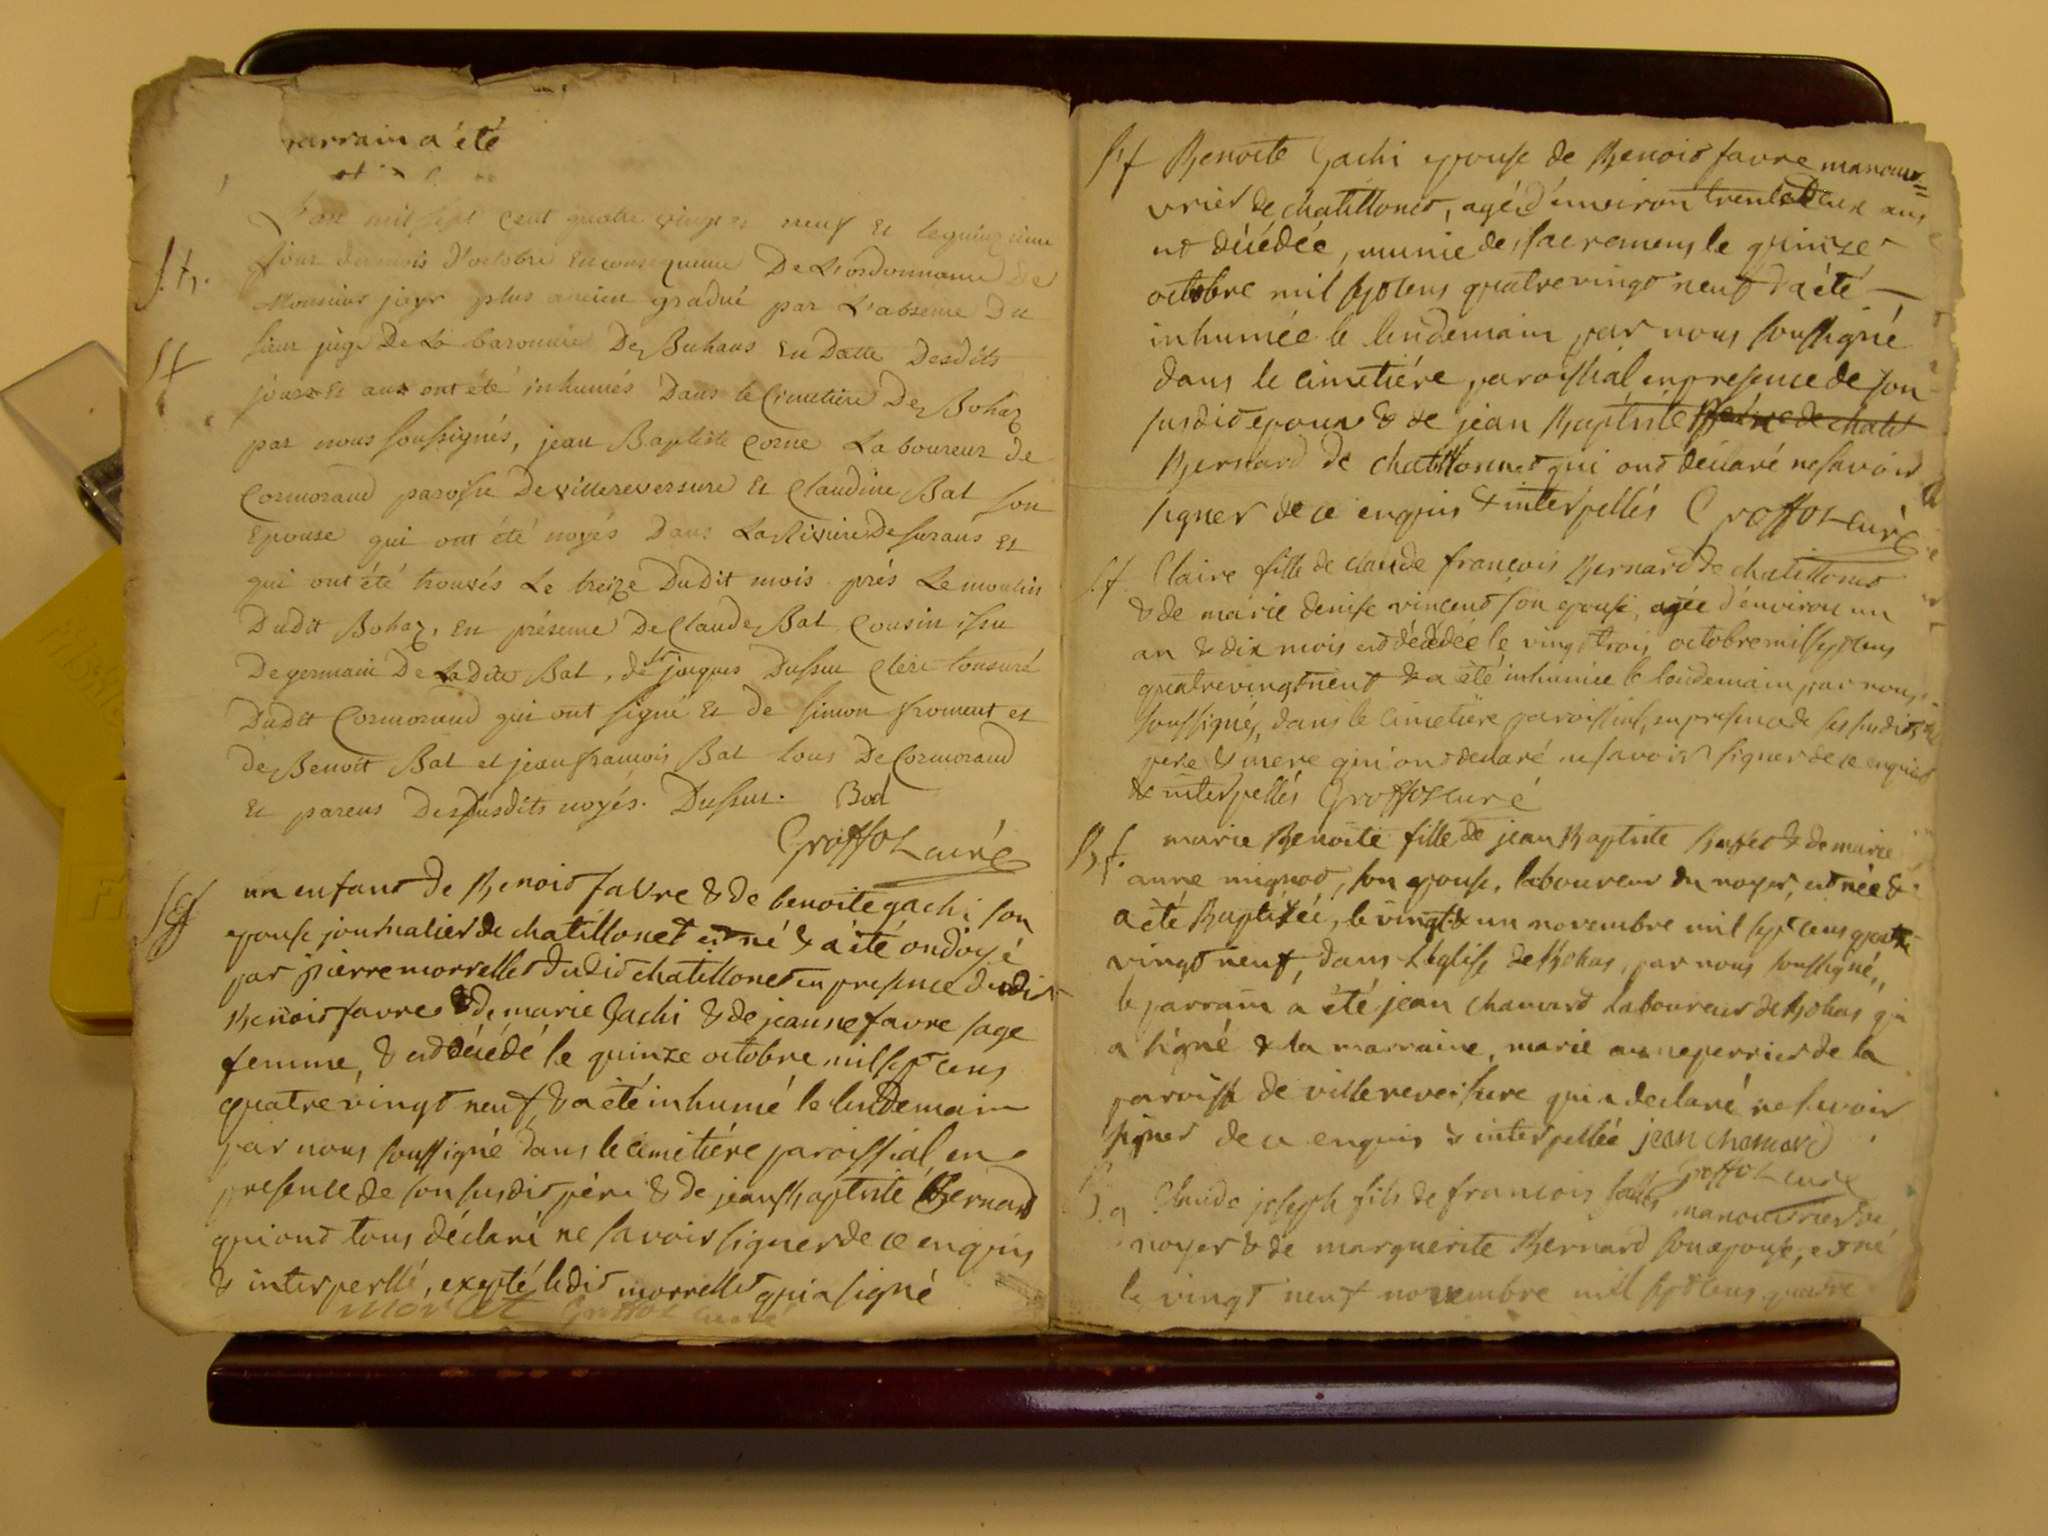 parrain a été
L'an mil sept cent quatre vingt et neuf et le quinzieme
S.h. Jour du mois d'octobre en consequence De L'ordonnance De
Monsieur jayr plus ancien gradué par L'absence Du
Sf sieur juge De La baronnie De Buhans en Datte Desdits
jours et ans ont été inhumés Dans le Cimetiere De Bohaz
par nous soussignés, jean Baptiste Corne Laboureur de
Cormorand paroisse De villereversure et Claudine Bat son
Epouse qui ont été noyés Dans La Riviere De Surans et
qui ont été trouvés Le treize Dudit mois prés Le moulin
Dudit Bohaz, en présence De Claude Bat Cousin issu
De germain De Ladite Bat, de sr jacques Dussuc Clerc tonsuré
Dudit Cormorand qui ont signé et de simon froment et
de Benoit Bat et jean francois Bat tous De Cormorand
et parens Desusdits noyés. Dussuc. Bat
Groffoz curé
Sgf un enfant de Benoit favre & de benoite gachi son
epouse journalier de chatillonet est né & a été ondoyé
par pierre morrellet dudit chatillonet en presence dudit
Benoit favre & de marie Gachi & de jeanne favre sage
femme, & est décédé le quinze octobre mil sept cens
quatre vingt neuf, & a été inhumé le lendemain
par nous soussigné dans le cimetiére paroissial en
presence de son susdit pére & de jean Baptiste Bernard
qui ont tous déclaré ne savoir signer de ce enquis
& interpellé, exepté ledit morrellet qui a signé
morlet Groffoz curé
Sf Benoite Gachi epouse de Benoit favre manouv=
vrier de chatillonet, agée d'environ trente deux ans
est décédée, munie des sacremens le quinze
octobre mil sept cens quatre vingt neuf & a été
inhumée le lendemain par nous soussigné
dans le cimetiére paroissial en presence de son
susdit epoux & de jean Baptiste
Bernard de chatillonnet qui ont déclaré ne savoir
signer de ce enquis & interpellés Groffoz curé
Sf. Claire fille de claude francois Bernard de chatillonet
& de marie denise vincent son epouse, agée d'environ un
an & dix mois est décédée le vingt trois octobre mil sept cens
quatre vingt neuf & a été inhumée le lendemain par nous
soussigné, dans le cimetiére paroissial, en presence de ses susdits
pere & mere qui ont declaré ne savoir signer de ce enquis
& interpellés Groffoz curé
B.f. marie Benoite fille de jean Baptiste Buffet & de marie
anne mignot, son epouse, laboureur du noyer, est née &
a été Baptizée, le vingt & un novembre mil sept cens quatre
vingt neuf, dans L'église de Bohas, par nous soussigné,
le parrain a été jean chamard Laboureur de Bohas qui
a signé & la marraine, marie anne perrier de la
paroisse de villereversure qui a declaré ne savoir
signer de ce enquis & interpellée jean chamard
Groffoz curé
B.g Claude joseph fils de francois manouvrier du
noyer & de marguerite Bernard son epouse, est né
le vingt neuf novembre mil sept cens quatre